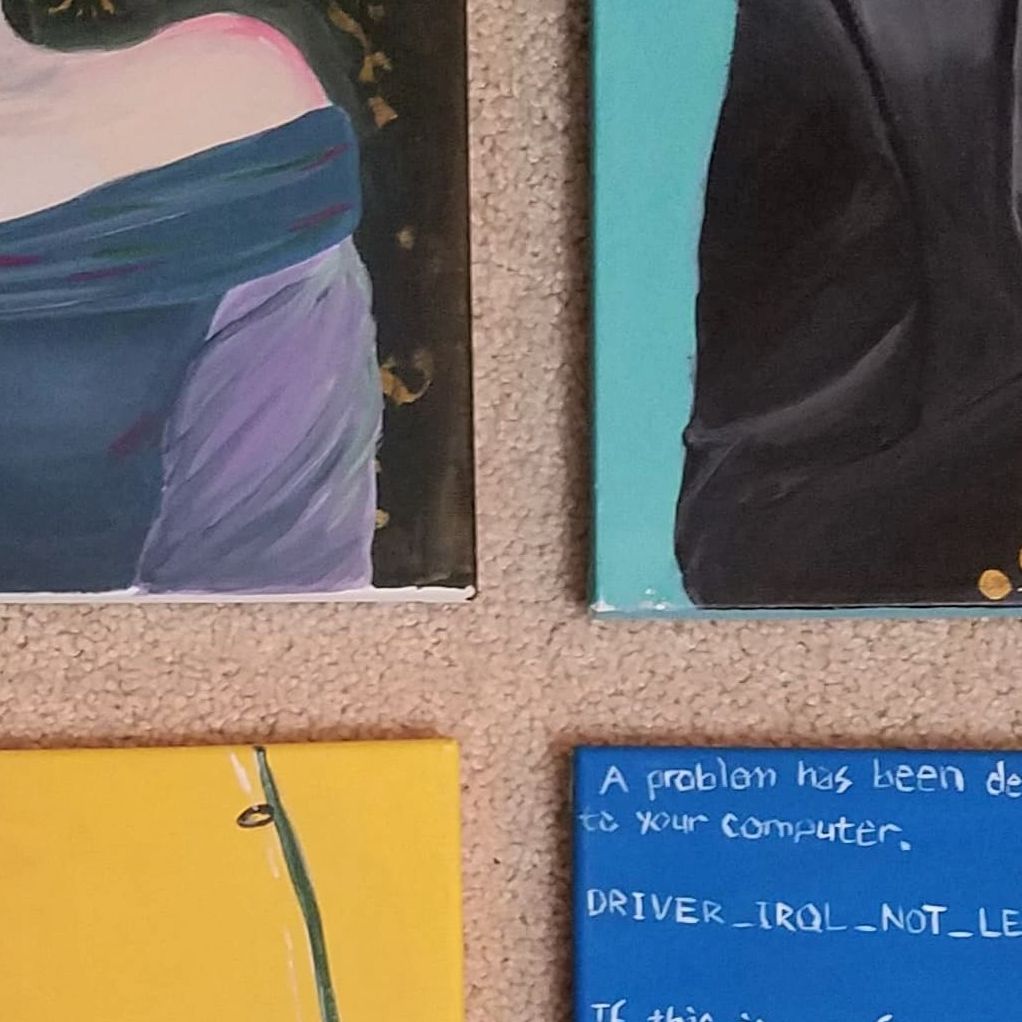 A problem has been de
to your computer.
DRIVER_IRQL_NOT_LE
If this is